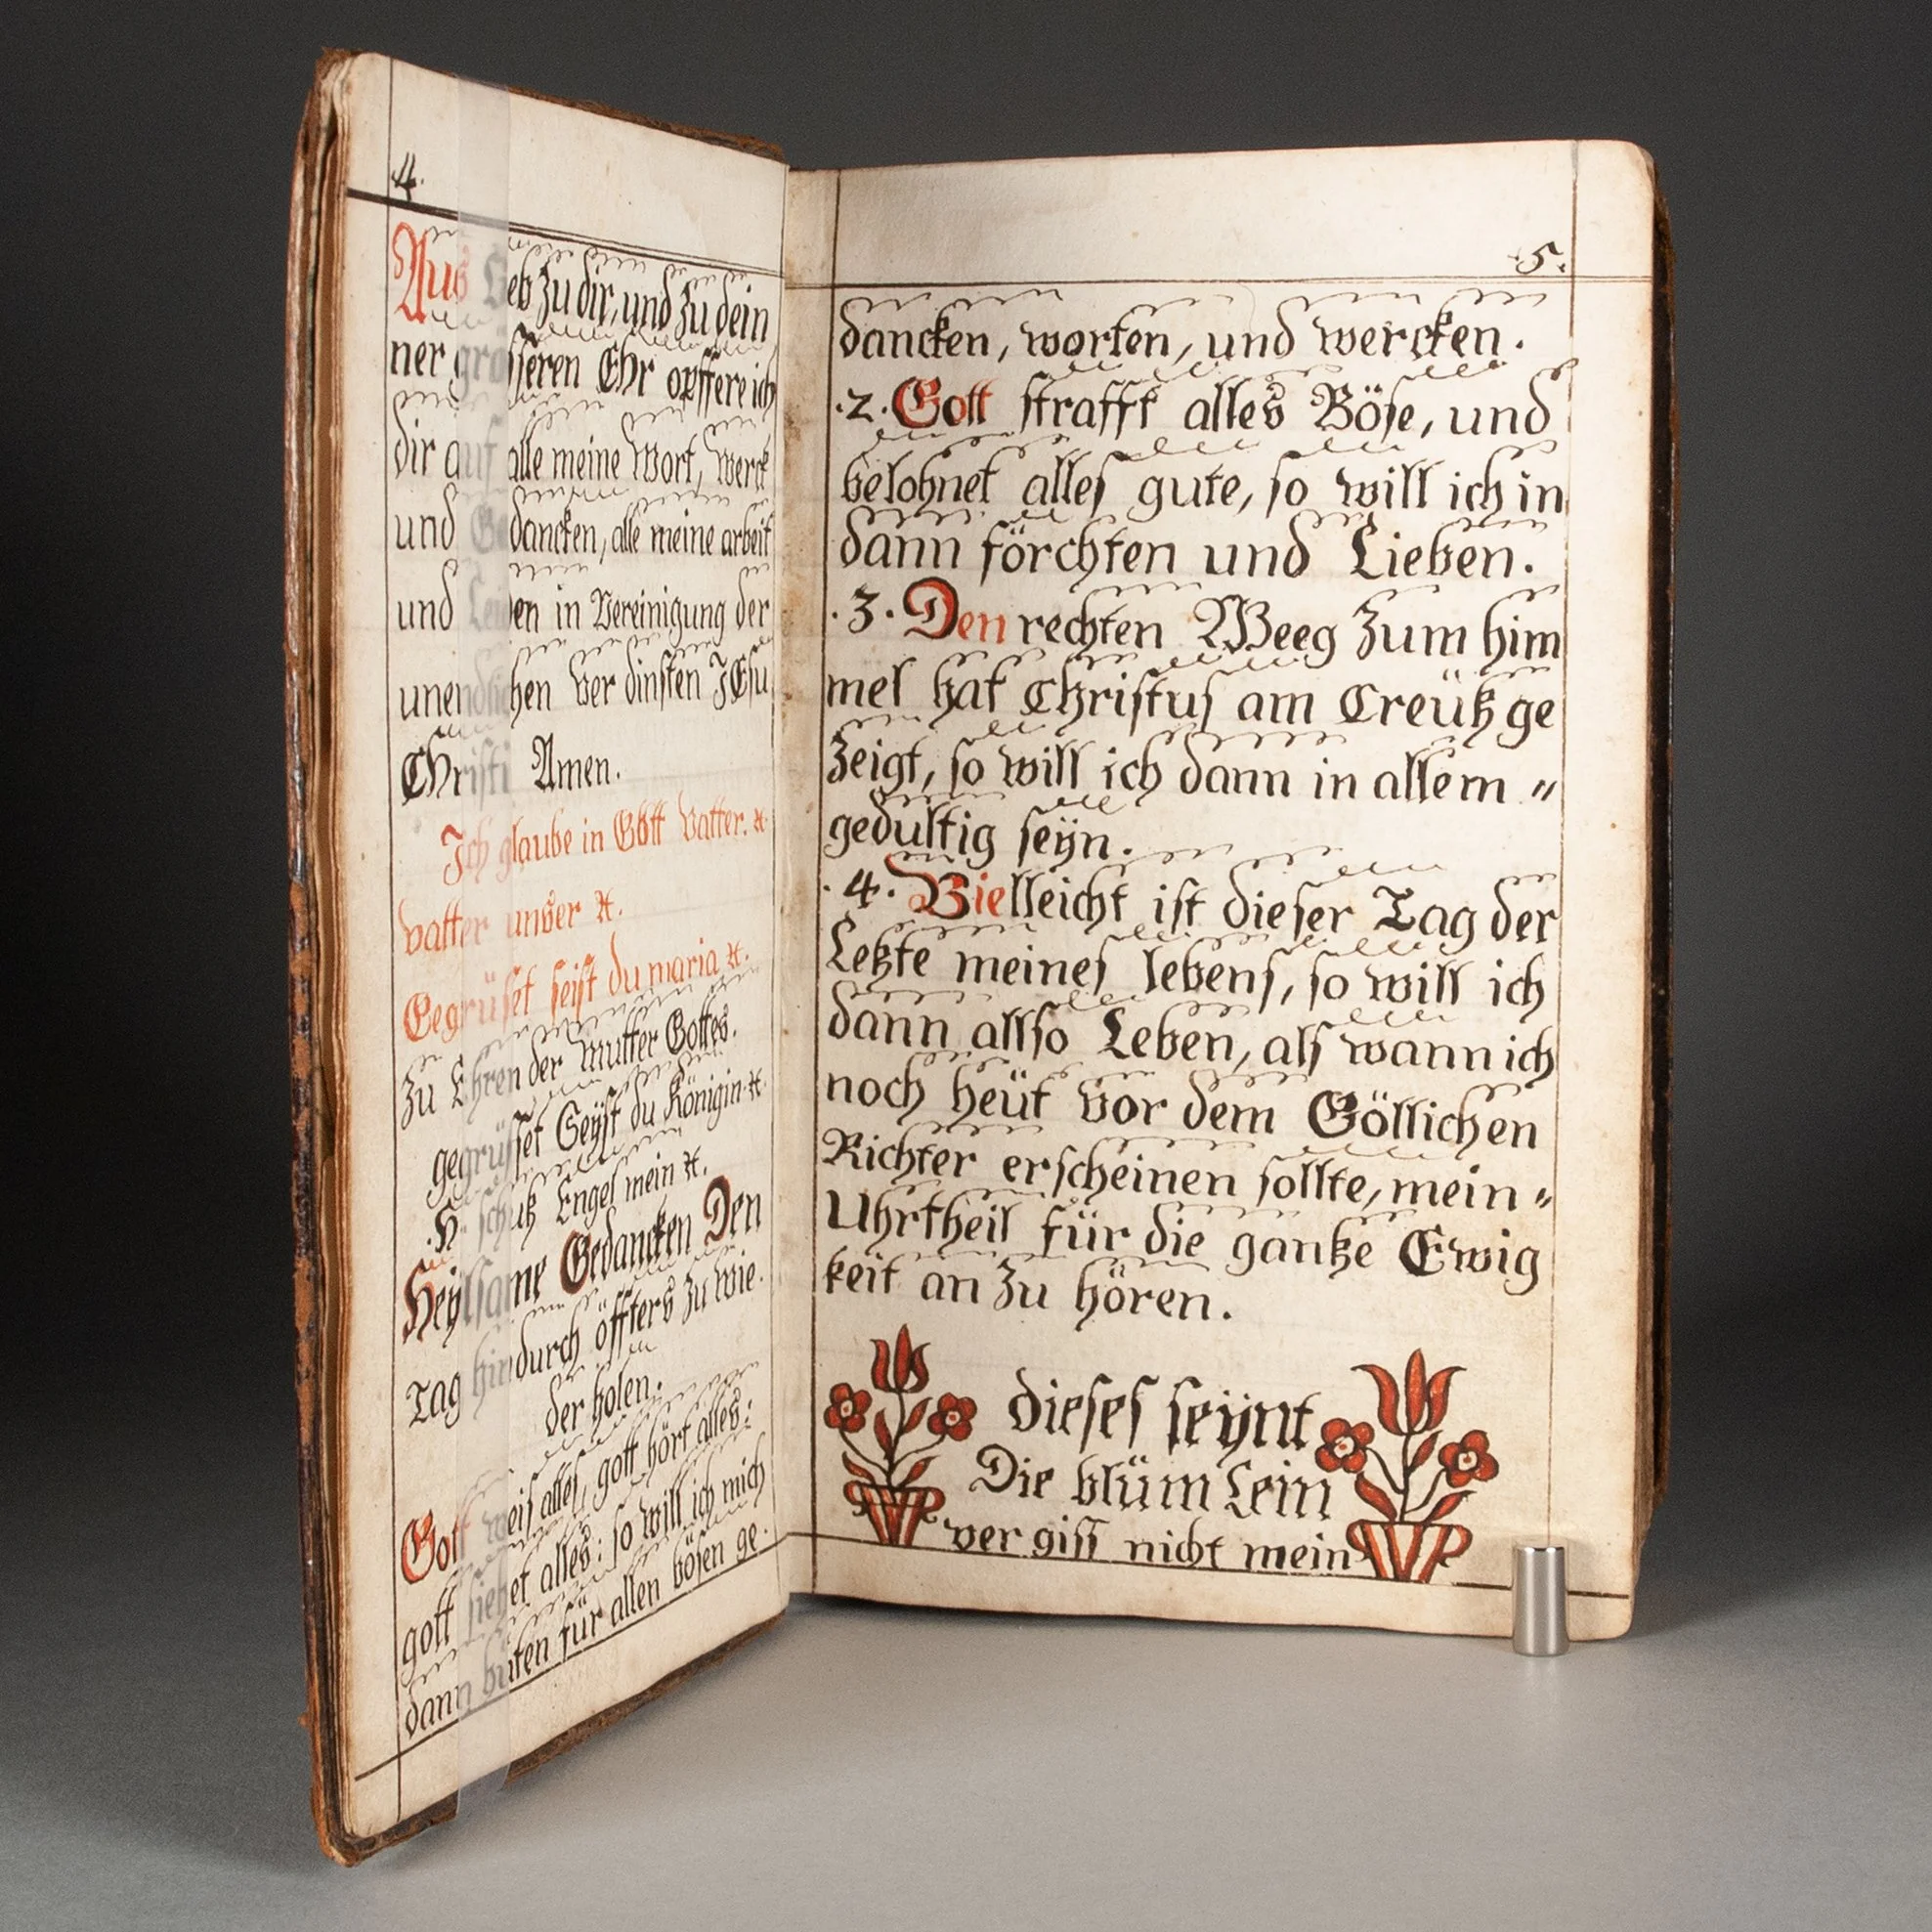 4.
Aus Lieb zu dir, und zu dein
ner grösseren Ehr opffere ich
dir auf alle meine Wort, werck
und Gedancken, alle meine arbeit
und Leiden in Vereinigung der
unendlichen ver dinsten JEsu
Christi Amen.
Ich glaube in Gott Vatter. ꝛc
vatter unser ꝛc.
Gegrüset seist du maria ꝛc.
Zu Ehren der mutter Gottes.
gegrüsset Seyst du Königin. ꝛc
.H. schutz Engel mein ꝛc.
Heylsame Gedancken Den
Tag hindurch öffters zu wie.
der holen.
Gott weis alles, gott hört alles:
gott siehet alles: so will ich mich
dann hüten für allen bösen ge.
5.
dancken, worten, und wercken.
.2. Gott strafft alles Böse, und
belohnet alles gute, so will ich in
dann förchten und Lieben.
.3. Den rechten Weeg zum him
mel hat Christus am Creütz ge
zeigt, so will ich dann in allem „
gedultig seÿn.
.4. Vielleicht ist dieser Tag der
Letzte meines lebens, so will ich
dann allso Leben, als wann ich
noch heüt vor dem Göllichen
Richter erscheinen sollte, mein „
Uhrtheil für die gantze Ewig
keit an zu hören.
dieses seÿnt
Die blüm Lein
ver giss nicht mein